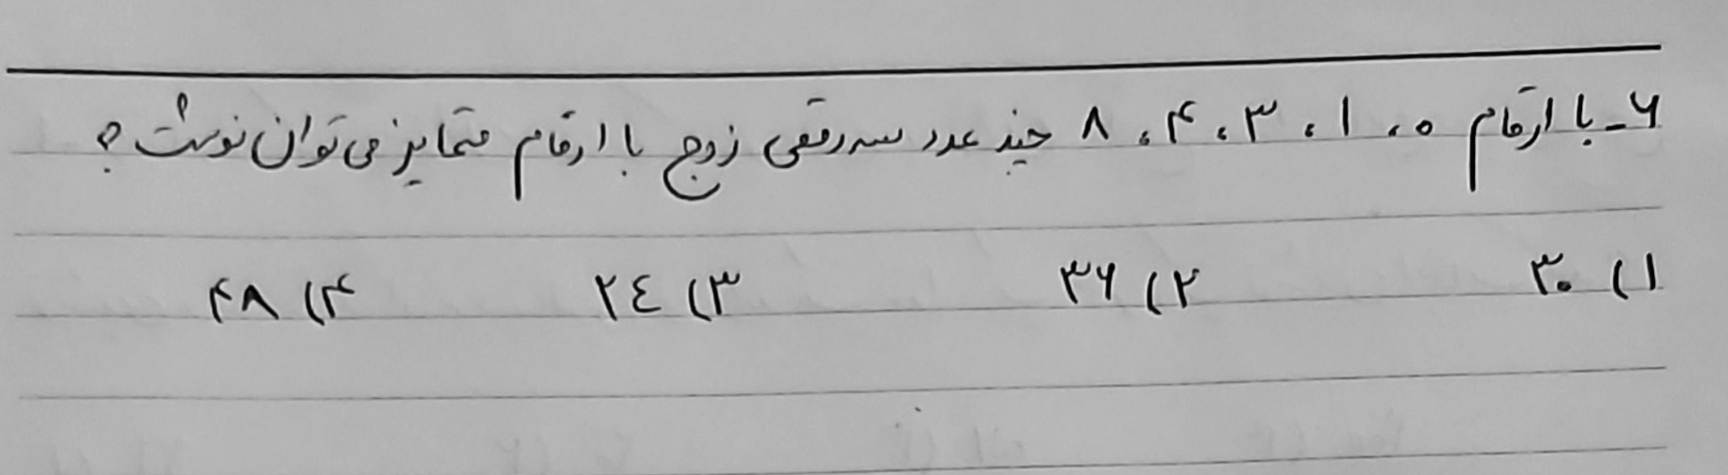 ۶- با ارقام ۰، ۱، ۳، ۴، ۸ چند عدد سه رقمی زوج با ارقام متمایز می‌توان نوشت؟
۱) ۳۰ ۲) ۳۶ ۳) ۲٤ ۴) ۴۸